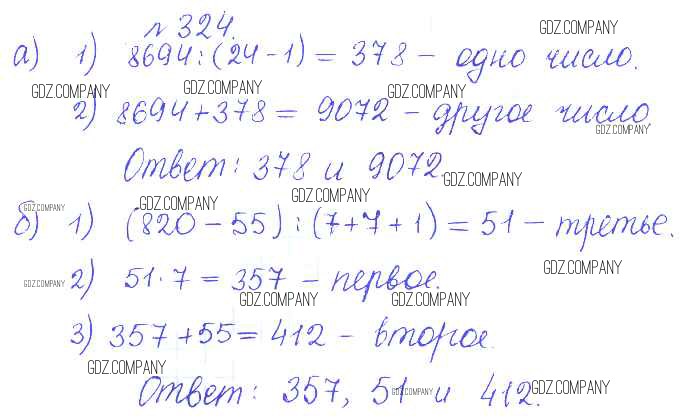 № 324.
GDZ.COMPANY
а) 1) 8694 : (24 - 1) = 378 - одно число.
GDZ.COMPANY GDZ.COMPANY GDZ.COMPANY
2) 8694 + 378 = 9072 - другое число
GDZ.COMPANY
Ответ: 378 и 9072.
GDZ.COMPANY
GDZ.COMPANY GDZ.COMPANY GDZ.COMPANY
б) 1) (820 - 55) : (7 + 7 + 1) = 51 - третье.
GDZ.COMPANY
2) 51 · 7 = 357 - первое.
GDZ.COMPANY
GDZ.COMPANY GDZ.COMPANY
3) 357 + 55 = 412 - второе.
GDZ.COMPANY
Ответ: 357, 51 и 412.
GDZ.COMPANY GDZ.COMPANY